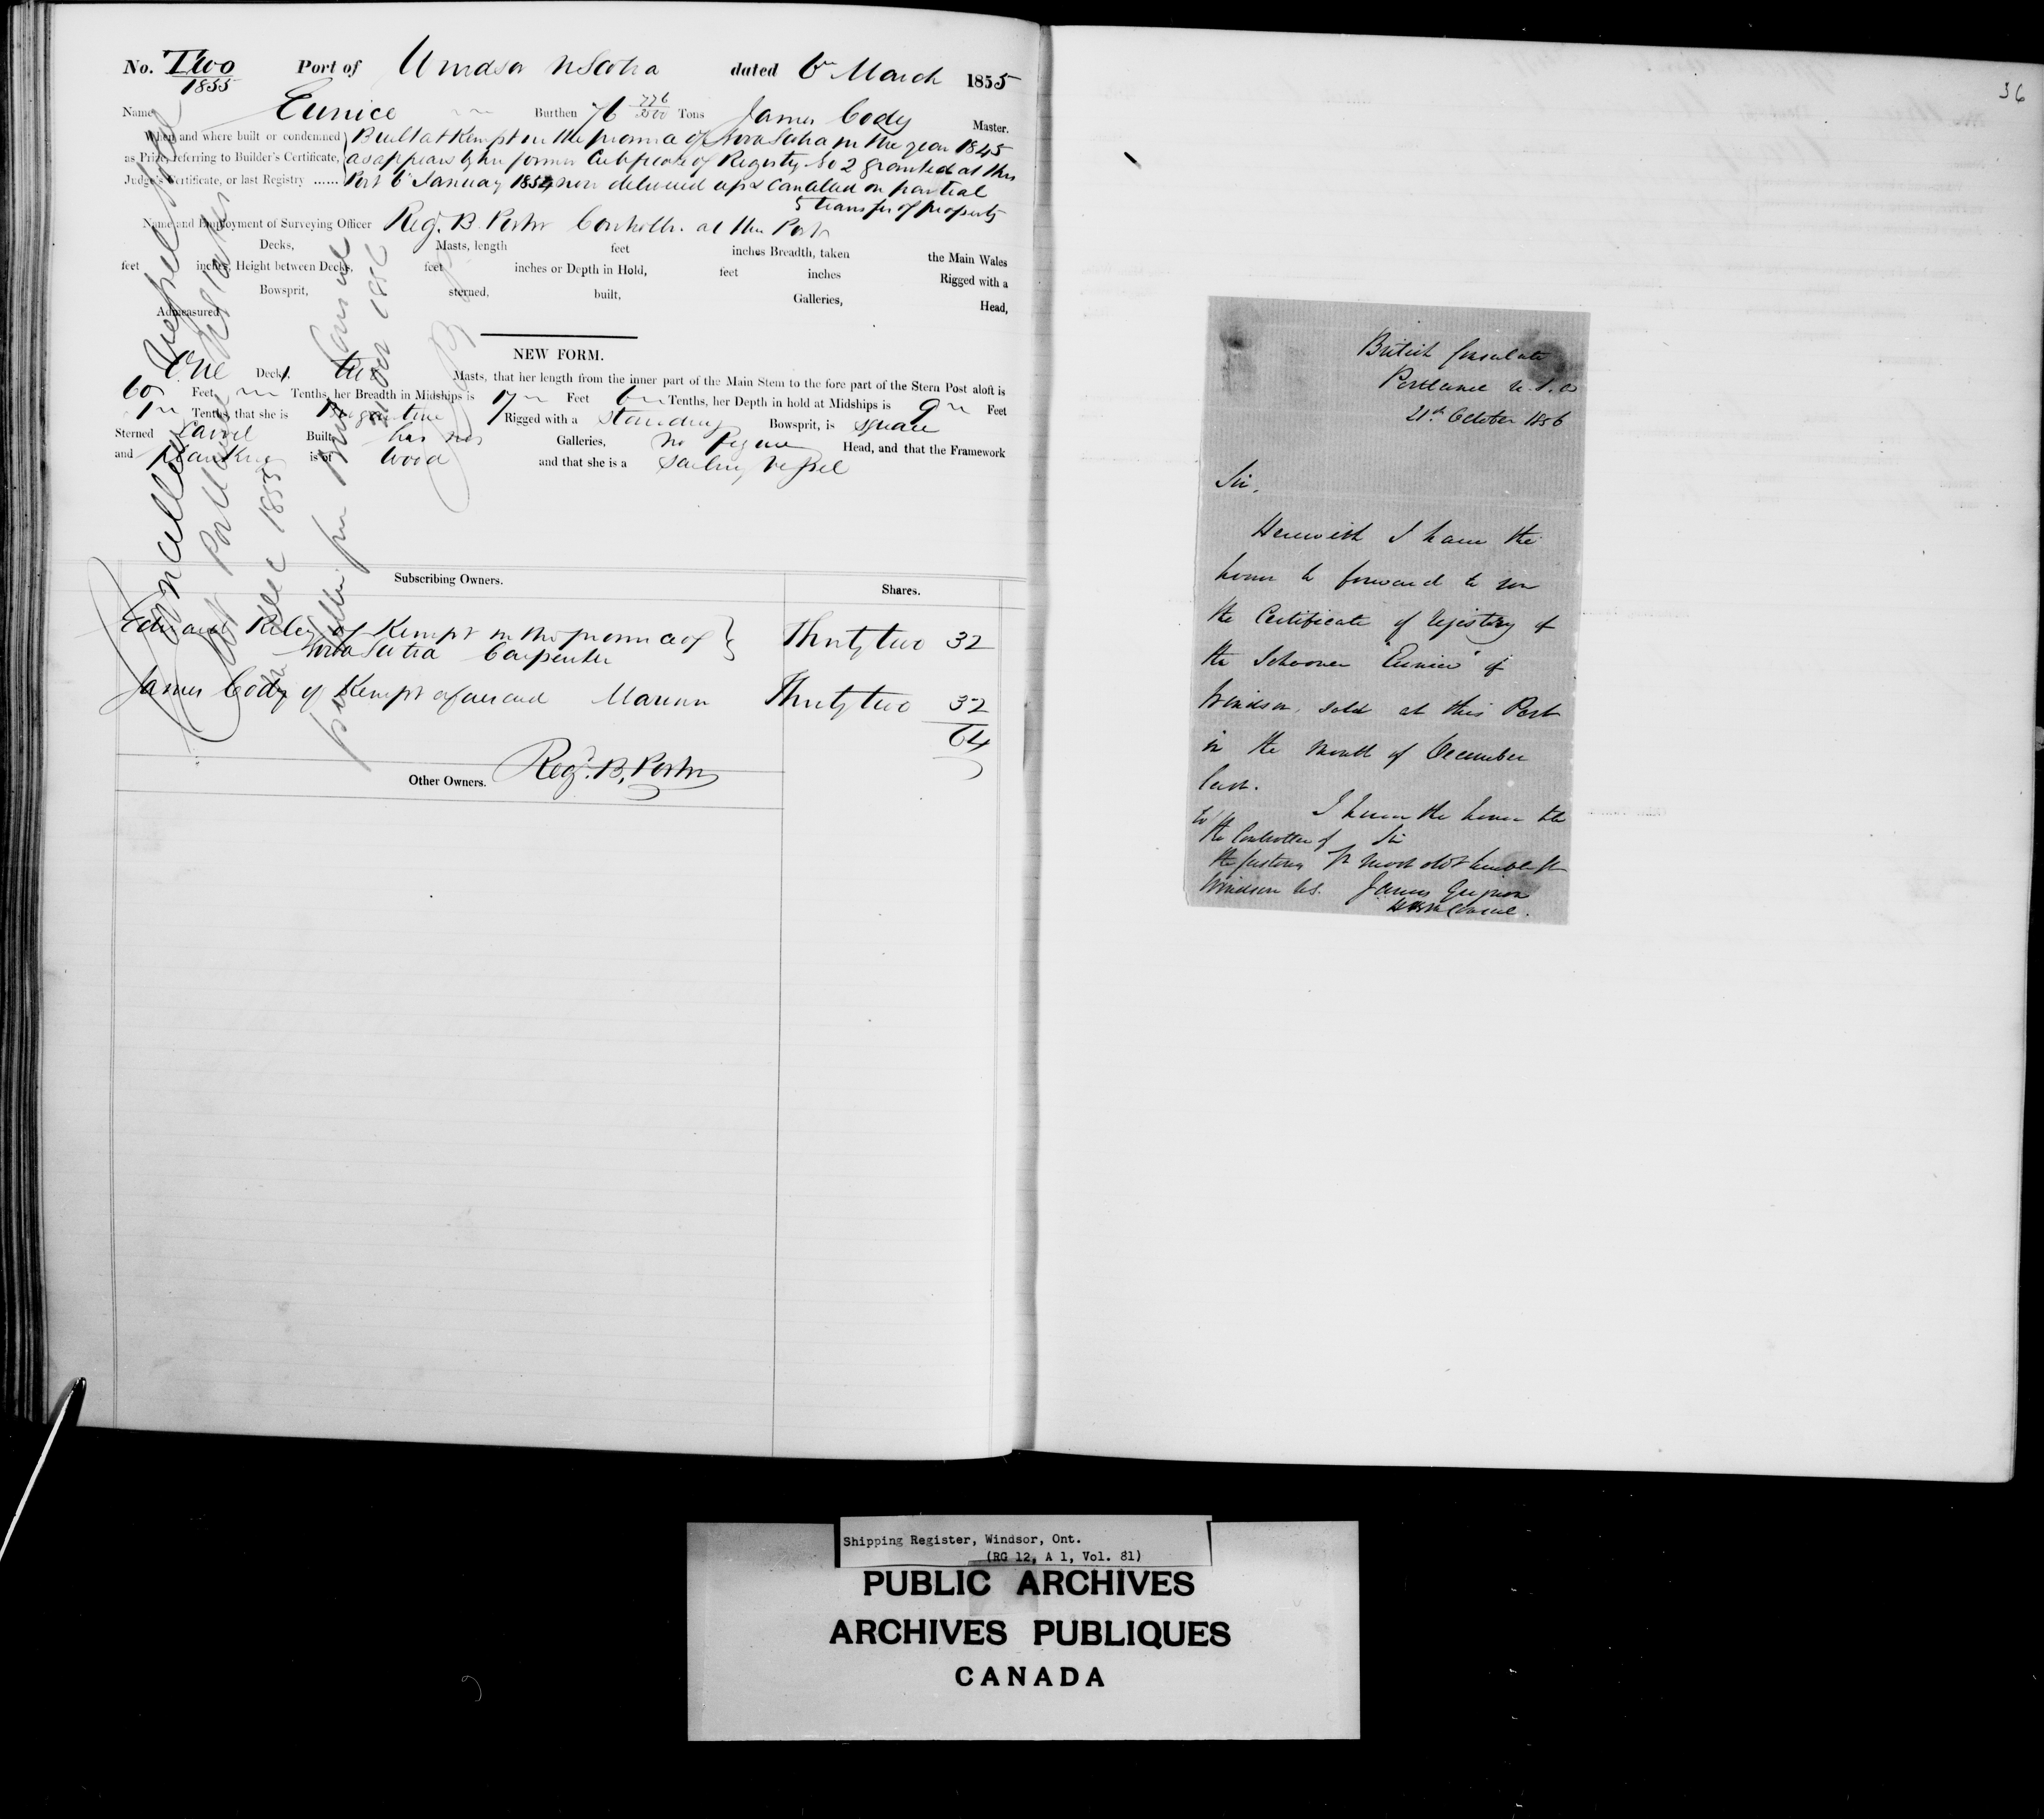 No. Two Port of Windsor N Scotia dated 6th March 1855
1855
Name Eunice Burthen 76 776/3500 Tons James Cody Master.
When and where built or condemned Built at Kempt in the province of Nova Scotia in the year 1845
as Prize, referring to Builder's Certificate, as appears by her former Certificate of Registry No 2 granted at this
Judge's Certificate, or last Registry ...... Port 6 January 1854 now delivered up & Cancelled on partial
transfer of property
Name and Employment of Surveying Officer Reg. B. Porter Controller at this Port
Decks, Masts, length feet inches Breadth, taken the Main Wales
feet inches, Height between Decks, feet inches or Depth in Hold, feet inches Rigged with a
Bowsprit, sterned, built, Galleries, Head,
Admeasured
NEW FORM.
One Deck, two Masts, that her length from the inner part of the Main Stem to the fore part of the Stern Post aloft is
Feet Tenths, her Breadth in Midships is 17 Feet 6 Tenths, her Depth in hold at Midships is 9 Feet
Tenths, that she is Brigantine Rigged with a standing Bowsprit, is square
Sterned Carvel Built has no Galleries, no figure Head, and that the Framework
and planking is of Wood and that she is a sailing vessel
Cancelled Vessel sold
at Portland
Dec 1855
Subscribing Owners. Shares.
Edward Riley of Kempt in the province of Thirty two 32
Nova Scotia Carpenter
James Cody of Kempt aforesaid Mariner Thirty two 32
64
Other Owners. Reg. B. Porter
36
British Consulate
Portland U.S.A
21st October 1856
Sir,
Herewith I have the
honor to forward to you
the Certificate of Registry of
the Schooner "Eunice" of
Windsor, sold at this Port
in the month of December
last.
I have the honor to be
To
the Controller of Sir
the Customs Yr most obt humble St
Windsor N.S. James Grignon
HBM Consul.
Shipping Register, Windsor, Ont.
(RG 12, A 1, Vol. 81)
PUBLIC ARCHIVES
ARCHIVES PUBLIQUES
CANADA